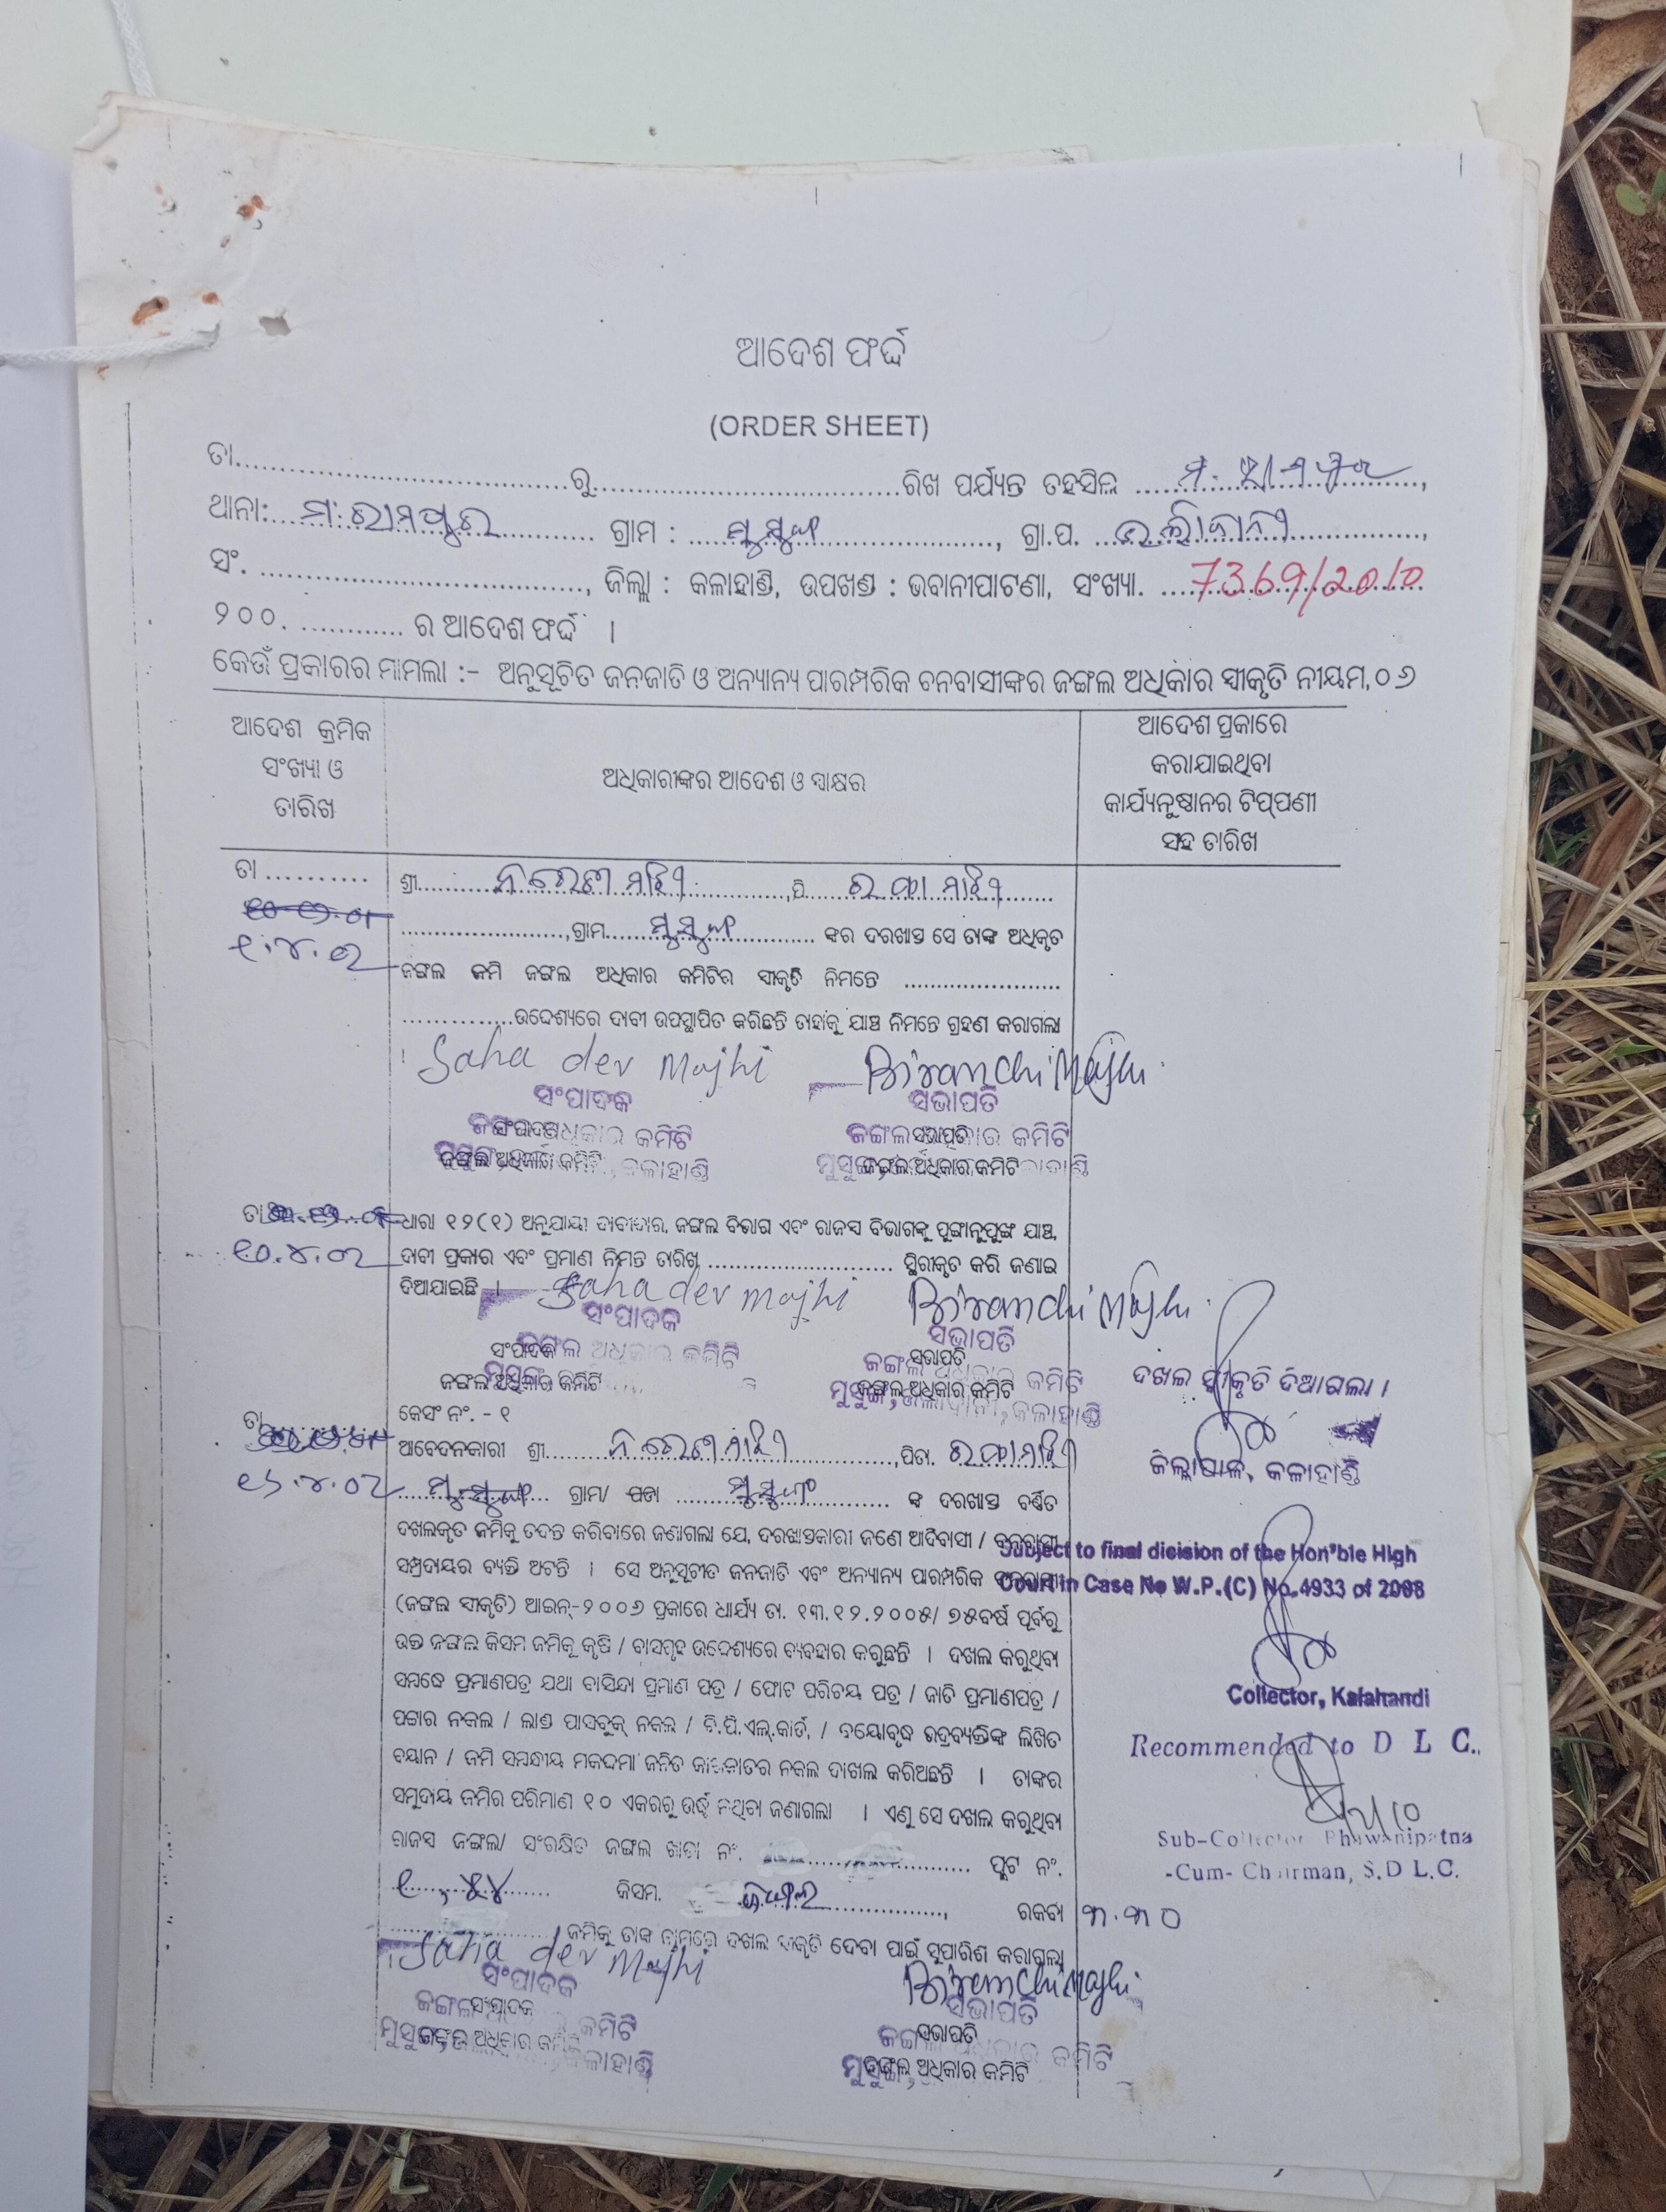 ଆଦେଶ ଫର୍ଦ୍ଦ
(ORDER SHEET)
ତା..............................ରୁ..............................ରିଖ ପର୍ଯ୍ୟନ୍ତ ତହସିଲ ମ. ରାମପୁର,
ଥାନା: ମ. ରାମପୁର ଗ୍ରାମ : ମୁସୁଙ୍ଗା, ଗ୍ରା.ପ.
ସଂ. .............................., ଜିଲ୍ଲା : କଳାହାଣ୍ଡି, ଉପଖଣ୍ଡ : ଭବାନୀପାଟଣା, ସଂଖ୍ୟା. 7369/2010
୨୦୦. ............ ର ଆଦେଶ ଫର୍ଦ୍ଦ ।
କେଉଁ ପ୍ରକାରର ମାମଲା :- ଅନୁସୂଚିତ ଜନଜାତି ଓ ଅନ୍ୟାନ୍ୟ ପାରମ୍ପରିକ ବନବାସୀଙ୍କର ଜଙ୍ଗଲ ଅଧିକାର ସ୍ୱୀକୃତି ନୀୟମ,୦୬
ଆଦେଶ କ୍ରମିକ
ସଂଖ୍ୟା ଓ
ତାରିଖ
ଅଧିକାରୀଙ୍କର ଆଦେଶ ଓ ସ୍ୱାକ୍ଷର
ଆଦେଶ ପ୍ରକାରେ
କରାଯାଇଥିବା
କାର୍ଯ୍ୟାନୁଷ୍ଠାନର ଟିପ୍ପଣୀ
ସହ ତାରିଖ
ତା ..........
ଶ୍ରୀ ମାଝି ,ପି. ମାଝି
୧.୪.୦୨
,ଗ୍ରାମ ମୁସୁଙ୍ଗା ଙ୍କର ଦରଖାସ୍ତ ସେ ତାଙ୍କ ଅଧିକୃତ
ଜଙ୍ଗଲ ଜମି ଜଙ୍ଗଲ ଅଧିକାର କମିଟିର ସ୍ୱୀକୃତି ନିମନ୍ତେ ......................
..............ଉଦ୍ଦେଶ୍ୟରେ ଦାବୀ ଉପସ୍ଥାପିତ କରିଛନ୍ତି ତାହାକୁ ଯାଞ୍ଚ ନିମନ୍ତେ ଗ୍ରହଣ କରାଗଲା
। Saha dev Majhi Biranchi Majhi
ସଂପାଦକ ସଭାପତି
ଜଙ୍ଗଲ ଅଧିକାର କମିଟି ଜଙ୍ଗଲ ଅଧିକାର କମିଟି
ତା ଧାରା ୧୨(୧) ଅନୁଯାୟୀ ଦାବୀଦାର, ଜଙ୍ଗଲ ବିଭାଗ ଏବଂ ରାଜସ୍ୱ ବିଭାଗଙ୍କୁ ପୁଙ୍ଖାନୁପୁଙ୍ଖ ଯାଞ୍ଚ,
୧୦.୪.୦୨ ଦାବୀ ପ୍ରକାର ଏବଂ ପ୍ରମାଣ ନିମନ୍ତେ ତାରିଖ .......................... ସ୍ଥିରୀକୃତ କରି ଜଣାଇ
ଦିଆଯାଇଛି । Saha dev Majhi Biranchi Majhi
ସଂପାଦକ ସଭାପତି
ଜଙ୍ଗଲ ଅଧିକାର କମିଟି ଜଙ୍ଗଲ ଅଧିକାର କମିଟି
ଦଖଲ ସ୍ୱୀକୃତି ଦିଆଗଲା ।
ଜିଲ୍ଲାପାଳ, କଳାହାଣ୍ଡି
କେସଂ ନଂ. - ୧
ତା ଆବେଦନକାରୀ ଶ୍ରୀ ମାଝି ,ପିତା. ମାଝି
ମୁସୁଙ୍ଗା ଗ୍ରାମ/ ପଡା ମୁସୁଙ୍ଗା ଙ୍କ ଦରଖାସ୍ତ ବର୍ଣ୍ଣିତ
ଦଖଲକୃତ ଜମିକୁ ତଦନ୍ତ କରିବାରେ ଜଣାଗଲା ଯେ, ଦରଖାସ୍ତକାରୀ ଜଣେ ଆଦିବାସୀ / ବନବାସୀ
ସମ୍ପ୍ରଦାୟର ବ୍ୟକ୍ତି ଅଟନ୍ତି । ସେ ଅନୁସୂଚୀତ ଜନଜାତି ଏବଂ ଅନ୍ୟାନ୍ୟ ପାରମ୍ପରିକ ବନବାସୀ
(ଜଙ୍ଗଲ ସ୍ୱୀକୃତି) ଆଇନ୍-୨୦୦୬ ପ୍ରକାରେ ଧାର୍ଯ୍ୟ ତା. ୧୩.୧୨.୨୦୦୫/ ୭୫ବର୍ଷ ପୂର୍ବରୁ
ଉକ୍ତ ଜଙ୍ଗଲ କିସମ ଜମିକୁ କୃଷି / ବାସଗୃହ ଉଦ୍ଦେଶ୍ୟରେ ବ୍ୟବହାର କରୁଛନ୍ତି । ଦଖଲ କରୁଥିବା
ସମ୍ବନ୍ଧେ ପ୍ରମାଣପତ୍ର ଯଥା ବାସିନ୍ଦା ପ୍ରମାଣ ପତ୍ର / ଫୋଟ ପରିଚୟ ପତ୍ର / ଜାତି ପ୍ରମାଣପତ୍ର /
ପଟ୍ଟାର ନକଲ / ଲାଣ୍ଡ ପାସବୁକ୍ ନକଲ / ବି.ପି.ଏଲ୍.କାର୍ଡ, / ବୟୋବୃଦ୍ଧ ଭଦ୍ରବ୍ୟକ୍ତିଙ୍କ ଲିଖିତ
ବୟାନ / ଜମି ସମ୍ବନ୍ଧୀୟ ମକଦ୍ଦମା ଜନିତ କାଗଜାତର ନକଲ ଦାଖଲ କରିଅଛନ୍ତି । ତାଙ୍କର
ସମୁଦାୟ ଜମିର ପରିମାଣ ୧୦ ଏକରରୁ ଉର୍ଦ୍ଧ୍ୱ ନଥିବା ଜଣାଗଲା । ଏଣୁ ସେ ଦଖଲ କରୁଥିବା
ରାଜସ୍ୱ ଜଙ୍ଗଲ/ ସଂରକ୍ଷିତ ଜଙ୍ଗଲ ଖାତା ନଂ. ପ୍ଲଟ ନଂ.
କିସମ. ଜଙ୍ଗଲ, ରକବା ୩.୩୦
ଜମିକୁ ତାଙ୍କ ନାମରେ ଦଖଲ ସ୍ୱୀକୃତି ଦେବା ପାଇଁ ସୁପାରିଶ କରାଗଲା
Subject to final dicision of the Hon'ble High
Court in Case No W.P.(C) No.4933 of 2008
Collector, Kalahandi
Recommended to D L C.
Sub-Collector Bhawanipatna
-Cum- Chairman, S.D L.C.
Saha dev Majhi Biranchi Majhi
ସଂପାଦକ ସଭାପତି
ଜଙ୍ଗଲ ଅଧିକାର କମିଟି ଜଙ୍ଗଲ ଅଧିକାର କମିଟି